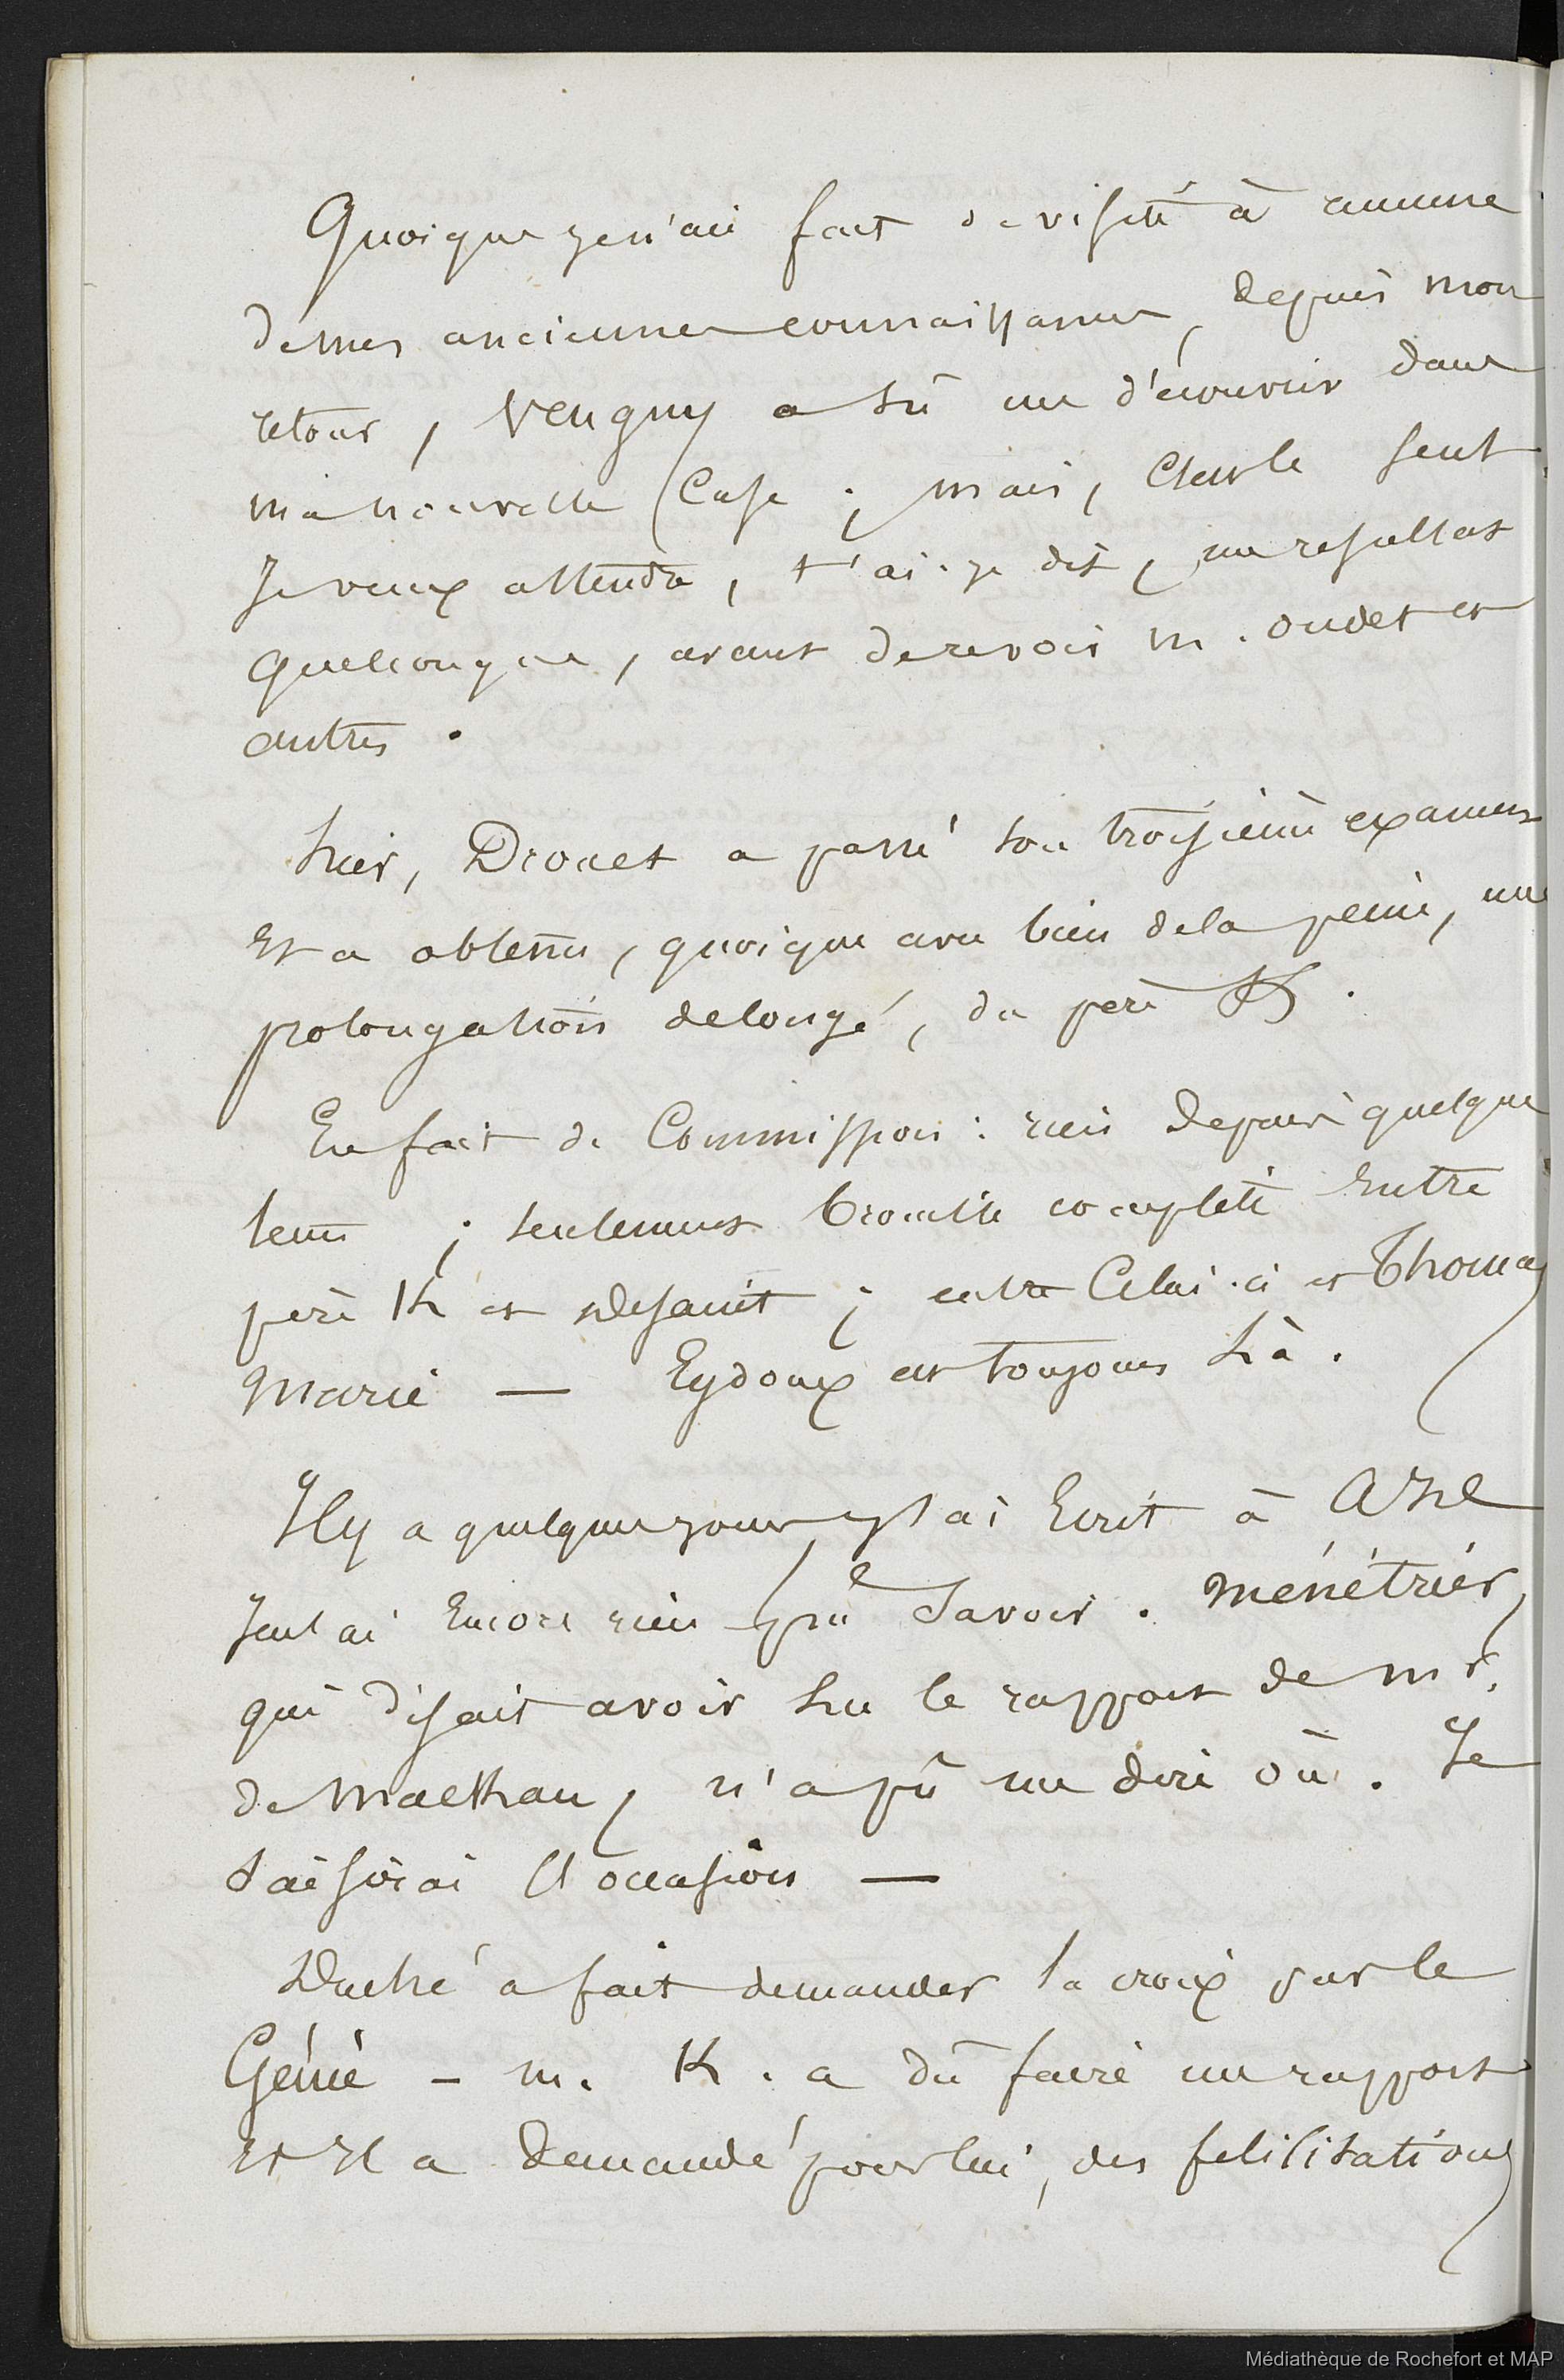 Quoique je n'ai fait de visite à aucune
de mes anciennes connaissances, depuis mon
retour, Vergny a sû me découvrir dans
ma nouvelle Case ; mais, seul
Je veux attendre, t'ai-je dit, un resultat
quelconque, avant de revoir m. oudet et
autres.
hier, Drouet a passé son troisième examen
Et a obtenu, quoique avec bien de la peine, une
prolongation de congé, du père K.
En fait de Commission : rien depuis quelque
tems ; seulement brouille complète Entre
père K et ; entre Celui-ci et Thomas
Marie — Eydoux est toujours Là.
Il y a quelques jours, J'ai Ecrit à
Je n'ai Encore rien pû Savoir. ménétrier,
qui disait avoir Lu le rapport de mr.
de Mackau, n'a pû me dire où. Je
Saisirai L'occasion —
Duché a fait demander la croix par le
Génie - m. K. a dû faire un rapport
Et Il a Demandé pour lui, des felicitations
Médiathèque de Rochefort et MAP